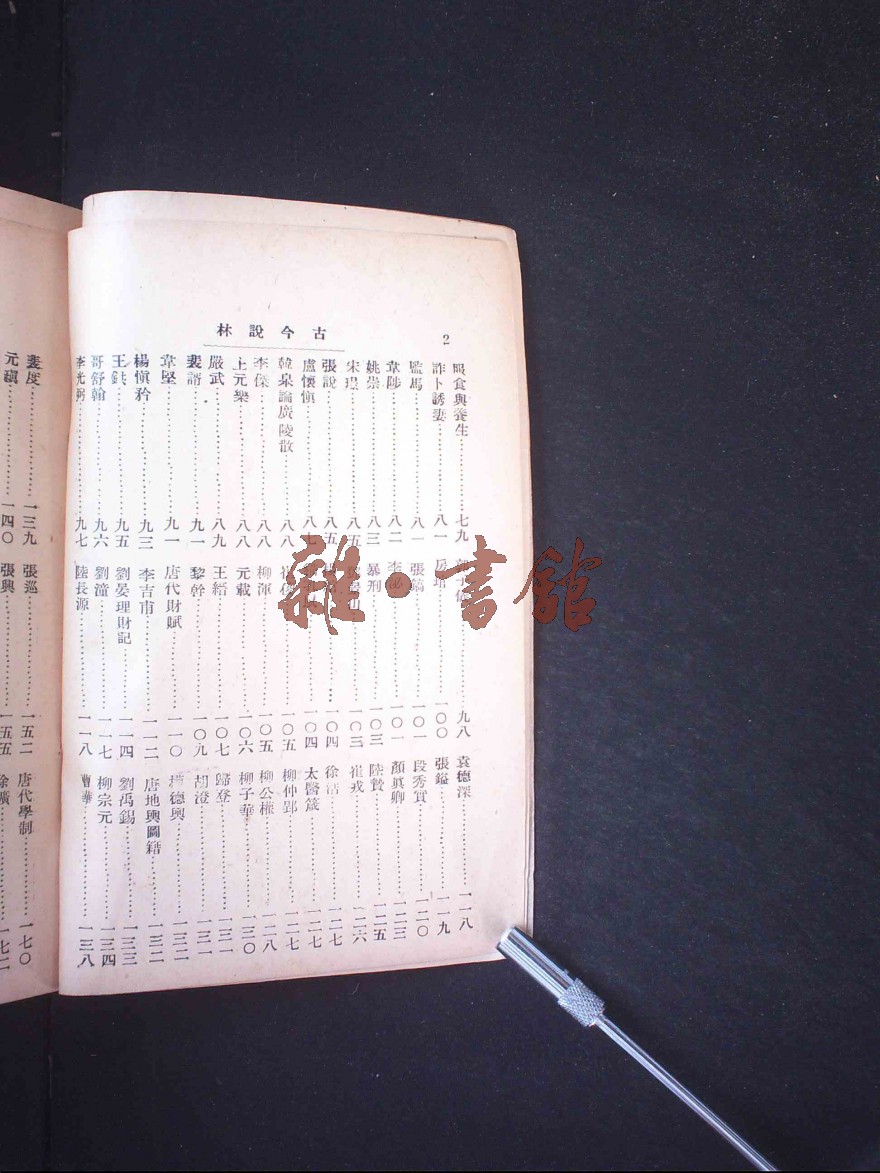 2
古今說林
服食與養生……七九
詐卜誘妻……八一
監馬……八一
韋陟……八二
姚崇……八三
宋璟……八五
張說……八五
盧懷慎……八七
韓皋論廣陵散……八八
李傑……八八
上元樂……八八
嚴武……八九
裴諝……九一
韋堅……九一
楊慎矜……九三
王鉷……九五
哥舒翰……九六
李光弼……九七
……九八
房琯……一〇〇
張鎬……一〇一
李泌……一〇一
暴刑……一〇三
……一〇三
……一〇四
……一〇四
……一〇五
柳渾……一〇五
元載……一〇六
王縉……一〇七
黎幹……一〇九
唐代財賦……一一〇
李吉甫……一一二
劉晏理財記……一一四
劉潼……一一七
陸長源……一一八
袁德深……一一八
張鎰……一一九
段秀實……一二〇
顏眞卿……一二三
陸贄……一二五
崔戎……一二六
徐浩……一二七
太醫箴……一二七
柳仲郢……一二七
柳公權……一二八
柳子華……一三〇
歸登……一三一
胡澄……一三一
權德輿……一三二
唐地輿圖籍……一三二
劉禹錫……一三三
柳宗元……一三四
曹華……一三八
裴度……一三九
元稹……一四〇
張巡……一五二
張興……一五五
唐代學制……一七〇
徐曠……一七二
雜·書館